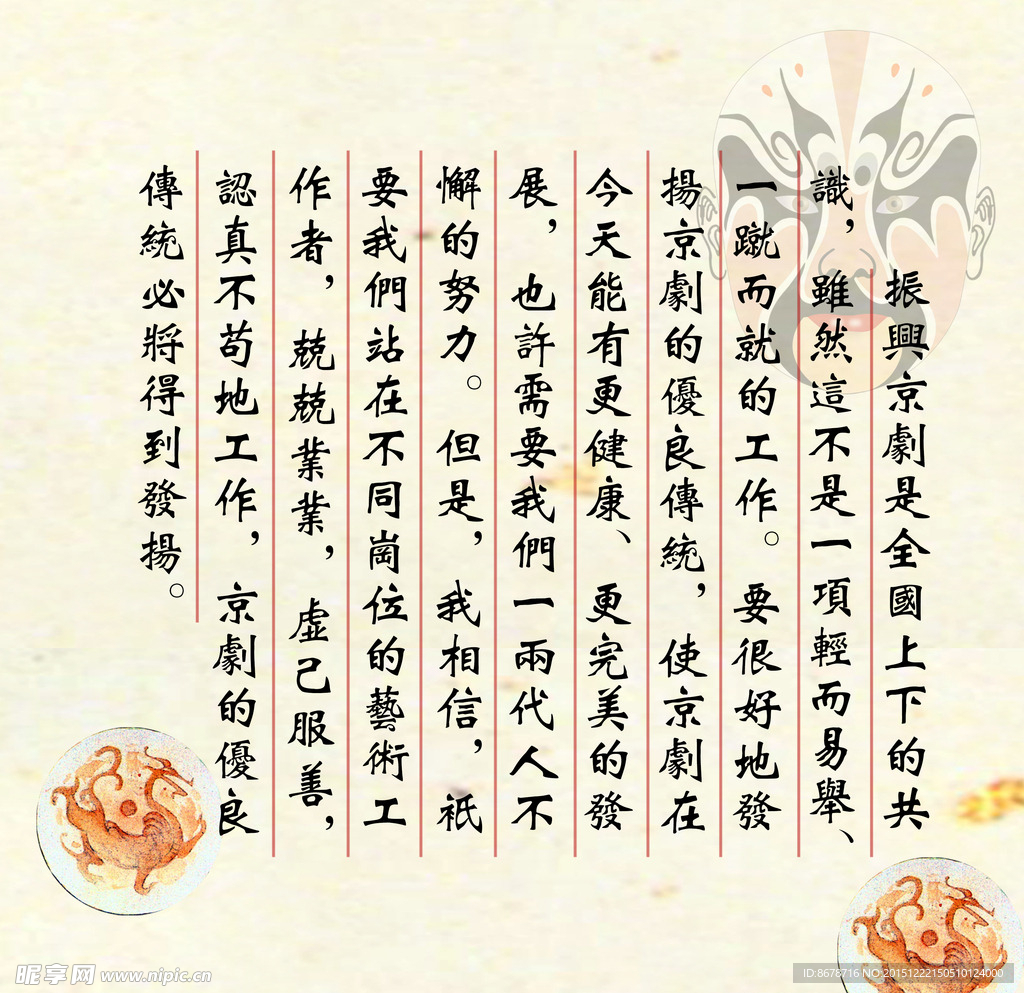 振興京劇是全國上下的共
識，雖然這不是一項輕而易舉、
一蹴而就的工作。要很好地發
揚京劇的優良傳統，使京劇在
今天能有更健康、更完美的發
展，也許需要我們一兩代人不
懈的努力。但是，我相信，祇
要我們站在不同崗位的藝術工
作者，兢兢業業，虛己服善，
認真不苟地工作，京劇的優良
傳統必將得到發揚。
昵享网 www.nipic.cn
ID:8678716 NO:20151222150510124000